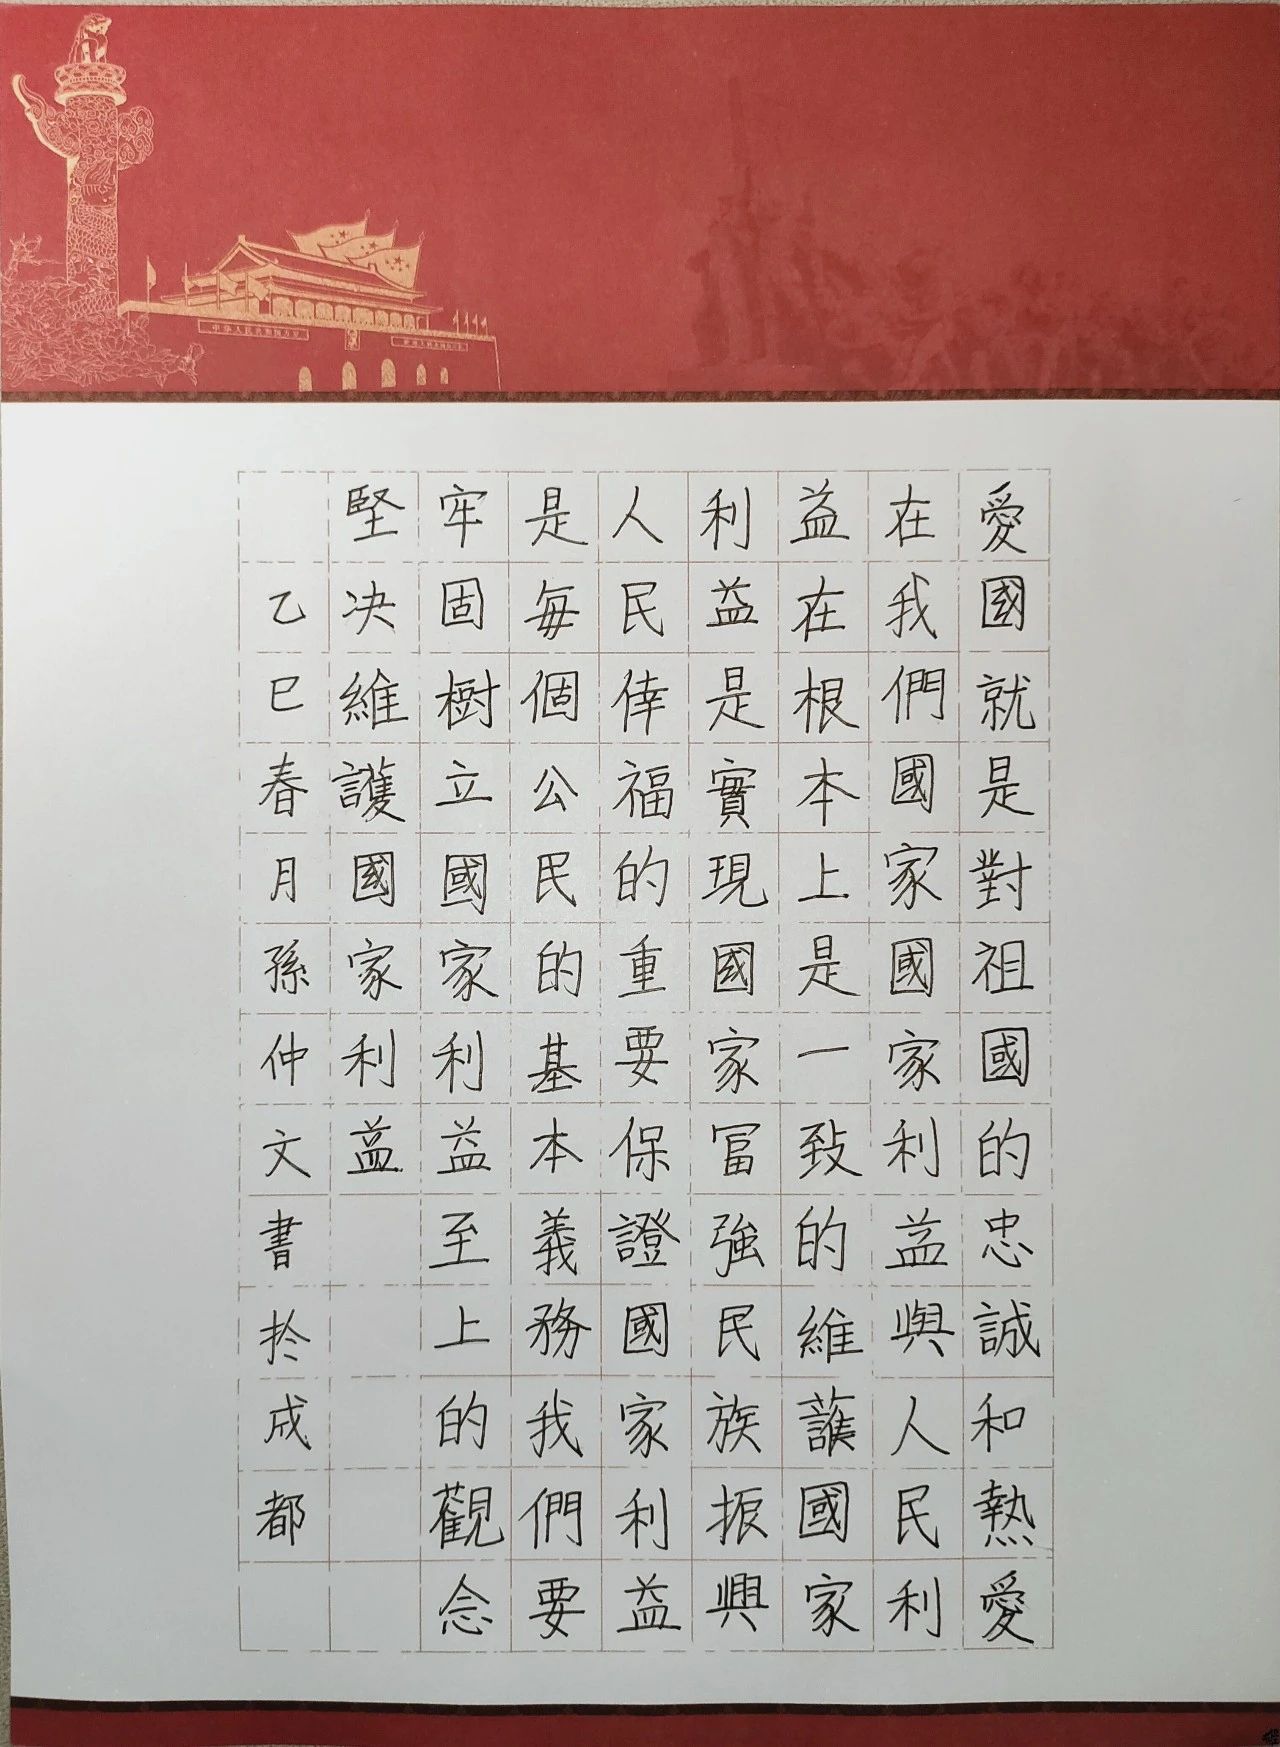 愛國就是對祖國的忠誠和熱愛
在我們國家國家利益與人民利
益在根本上是一致的維護國家
利益是實現國家富強民族振興
人民倖福的重要保證國家利益
是每個公民的基本義務我們要
牢固樹立國家利益至上的觀念
堅决維護國家利益
乙巳春月孫仲文書於成都